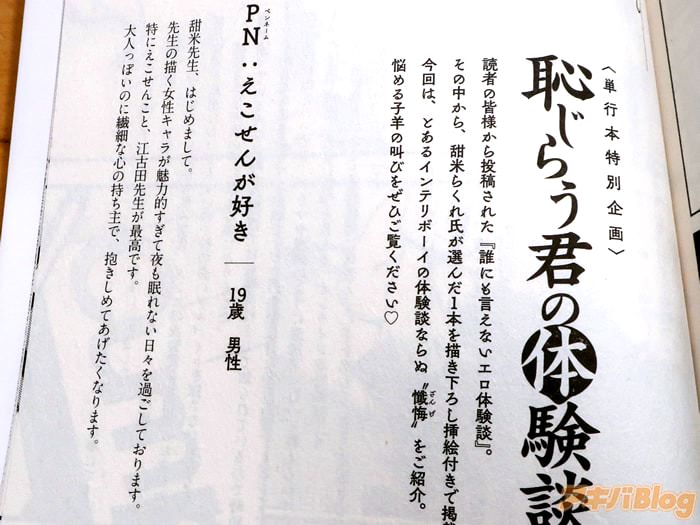 〈単行本特別企画〉
恥じらう君の体験談
読者の皆様から投稿された『誰にも言えないエロ体験談』。
その中から、甜米らくれ氏が選んだ1本を描き下ろし挿絵付きで掲
今回は、とあるインテリボーイの体験談ならぬ〝懺悔〟をご紹介。
ざんげ
悩める子羊の叫びをぜひご覧ください♡
PN:えこせんが好き ── 19歳 男性
ペンネーム
甜米先生、はじめまして。
先生の描く女性キャラが魅力的すぎて夜も眠れない日々を過ごしております。
特にえこせんこと、江古田先生が最高です。
大人っぽいのに繊細な心の持ち主で、抱きしめてあげたくなります。
アキバBlog